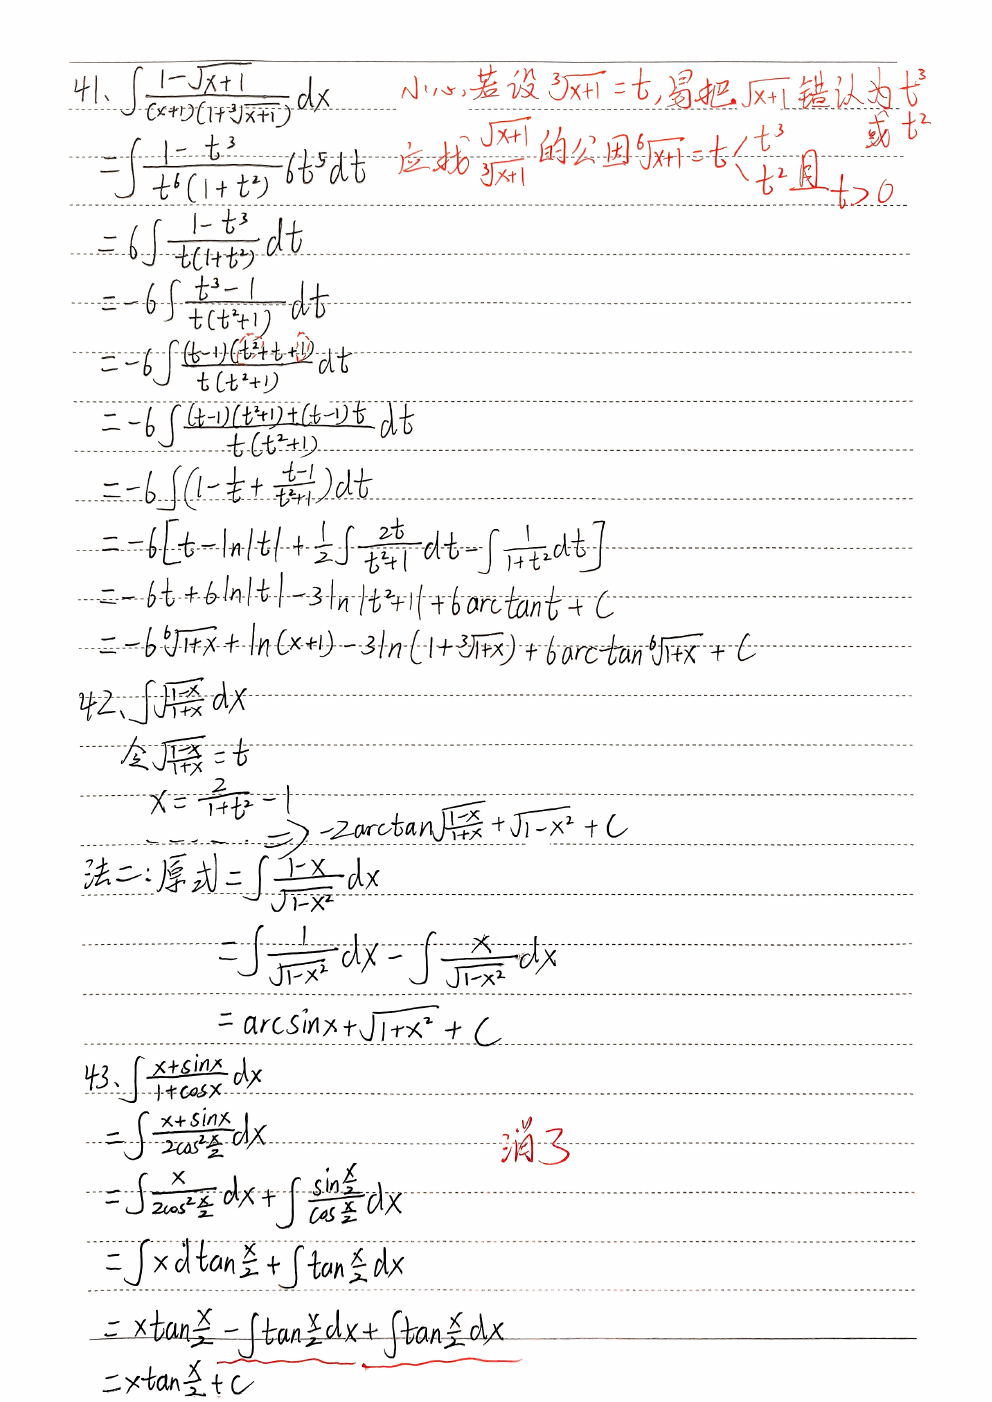 41、∫ (1-√(x+1))/((x+1)(1+³√(x+1))) dx 小心,若设 ³√(x+1) = t, 易把 √(x+1) 错认为 t³ 或 t²
= ∫ (1-t³)/(t⁶(1+t²)) 6t⁵dt 应找 √(x+1) ³√(x+1) 的公因 ⁶√(x+1) = t < t³ t² 且 t>0
= 6∫ (1-t³)/(t(1+t²)) dt
= -6∫ (t³-1)/(t(t²+1)) dt
= -6∫ ((t-1)(t²+t+1))/(t(t²+1)) dt
= -6∫ ((t-1)(t²+1)+(t-1)t)/(t(t²+1)) dt
= -6∫ (1 - 1/t + (t-1)/(t²+1)) dt
= -6[t - ln|t| + 1/2 ∫ 2t/(t²+1) dt - ∫ 1/(1+t²) dt]
= -6t + 6ln|t| - 3ln|t²+1| + 6arctant + C
= -6 ⁶√(1+x) + ln(x+1) - 3ln(1+³√(1+x)) + 6arctan ⁶√(1+x) + C
42、∫ √((1-x)/(1+x)) dx
令 √((1-x)/(1+x)) = t
x = 2/(1+t²) - 1
------- => -2arctan√((1-x)/(1+x)) + √(1-x²) + C
法二: 原式 = ∫ (1-x)/√(1-x²) dx
= ∫ 1/√(1-x²) dx - ∫ x/√(1-x²) dx
= arcsinx + √(1+x²) + C
43、∫ (x+sinx)/(1+cosx) dx
= ∫ (x+sinx)/(2cos² x/2) dx 消了
= ∫ x/(2cos² x/2) dx + ∫ (sin x/2)/(cos x/2) dx
= ∫ x d tan x/2 + ∫ tan x/2 dx
= xtan x/2 - ∫ tan x/2 dx + ∫ tan x/2 dx
= xtan x/2 + C